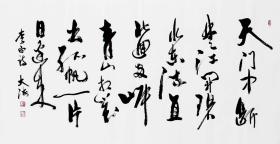 天门中断
楚江开碧
水东流直
北迴两岸
青山相对
出孤帆一片
日边来
李白诗